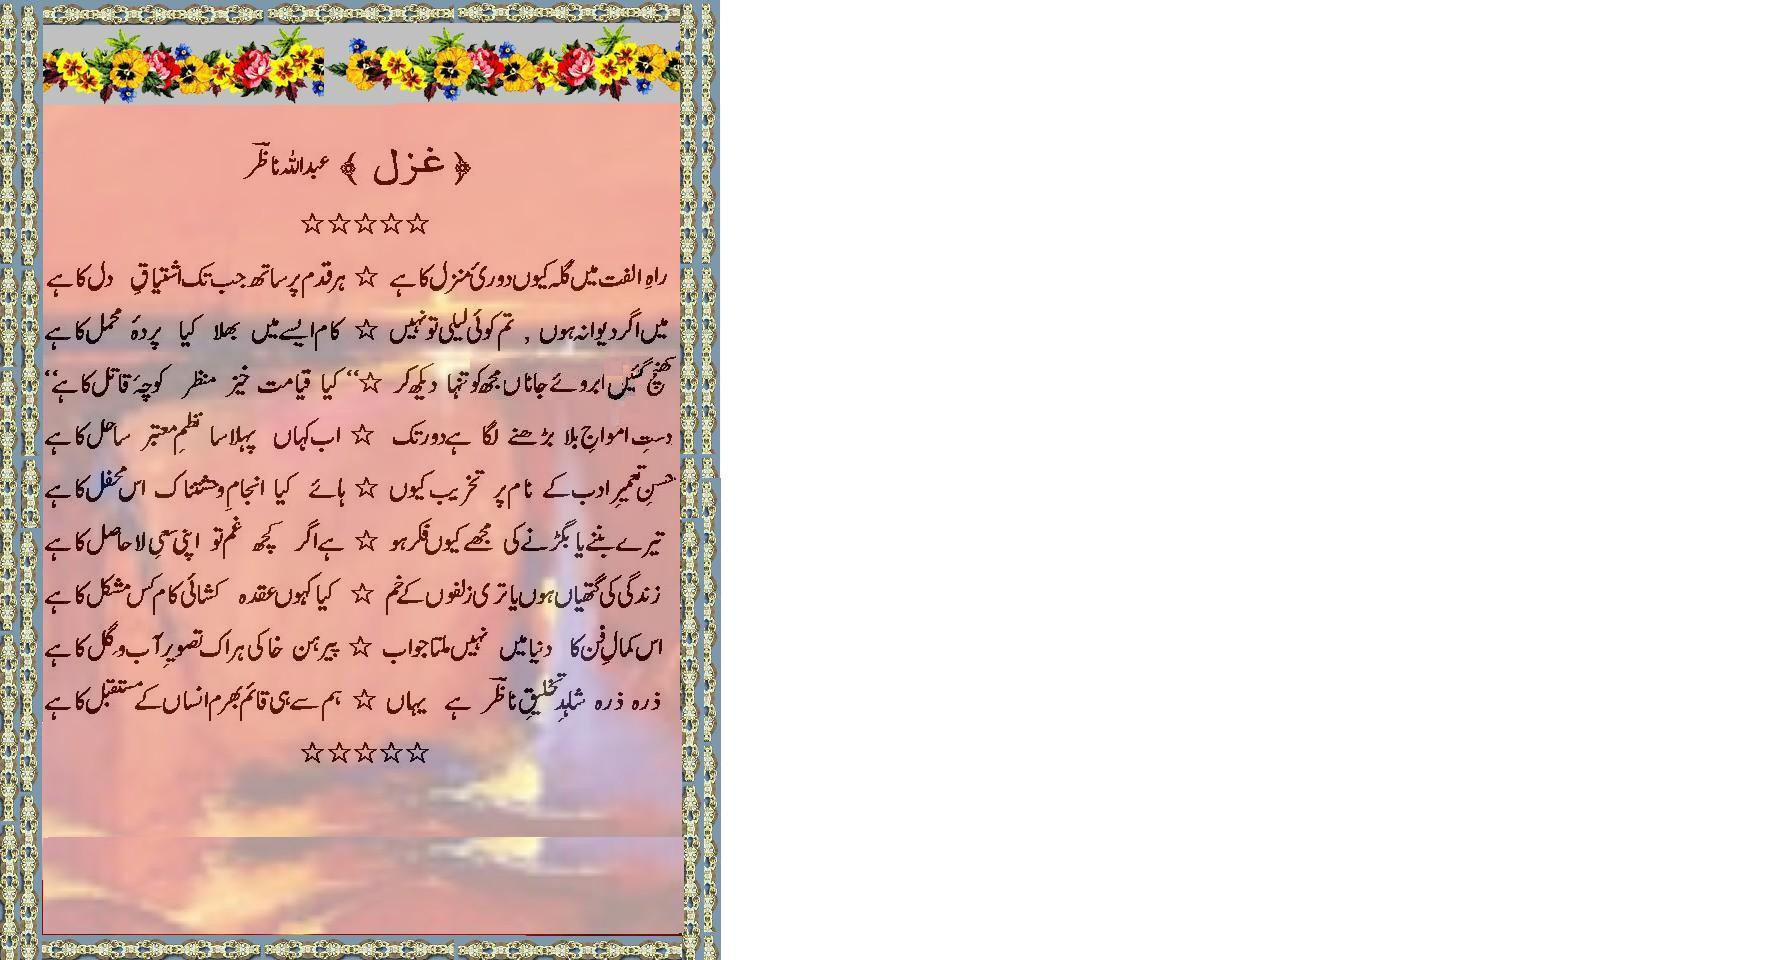 ﴿ غزل ﴾ عبداللہ ناظرؔ
☆☆☆☆☆
راہِ الفت میں گلہ کیوں دوریٔ منزل کا ہے ☆ ہر قدم پر ساتھ جب تک اشتیاقِ دل کا ہے
میں اگر دیوانہ ہوں , تم کوئی لیلیٰ تو نہیں ☆ کام ایسے میں بھلا کیا پردۂ محمل کا ہے
کھنچ گئیں ابروئے جاناں مجھ کو تنہا دیکھ کر ☆ “کیا قیامت خیز منظر کوچۂ قاتل کا ہے“
دستِ امواجِ بلا بڑھنے لگا ہے دور تک ☆ اب کہاں پہلا سا نظمِ معتبر ساحل کا ہے
حسنِ تعمیرِ ادب کے نام پر تخریب کیوں ☆ ہائے کیا انجامِ وحشتناک اس محفل کا ہے
تیرے بننے یا بگڑنے کی مجھے کیوں فکر ہو ☆ ہے اگر کچھ غم تو اپنی سعیِ لاحاصل کا ہے
زندگی کی گتھیاں ہوں یا تری زلفوں کے خم ☆ کیا کہوں عقدہ کشائی کام کس مشکل کا ہے
اس کمالِ فن کا دنیا میں نہیں ملتا جواب ☆ پیرہن خاکی ہر اک تصویرِ آب و گل کا ہے
ذرہ ذرہ شاہدِ تخلیقِ ناظرؔ ہے یہاں ☆ ہم سے ہی قائم بھرم انساں کے مستقبل کا ہے
☆☆☆☆☆